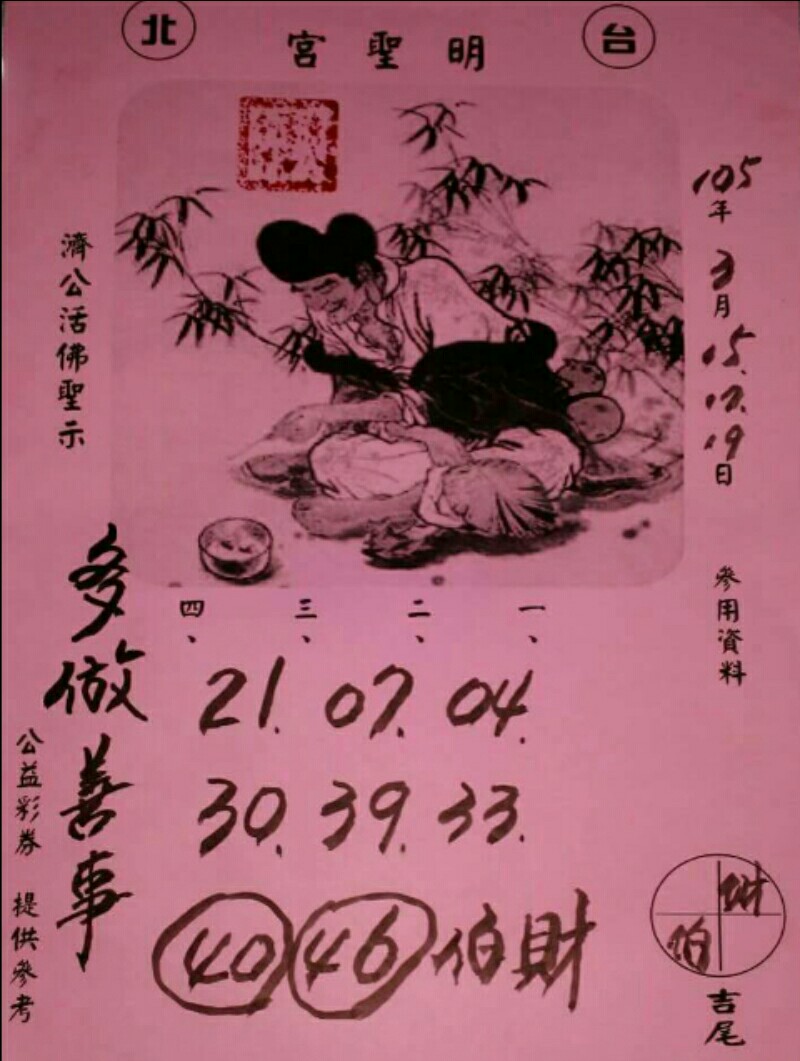 台北
明聖宮
105年3月15.17.19日
參用資料
濟公活佛聖示
一、二、三、四、
21. 07. 04.
30. 39. 33.
40 46 伯財
財
伯
吉尾
多做善事
公益彩券 提供參考